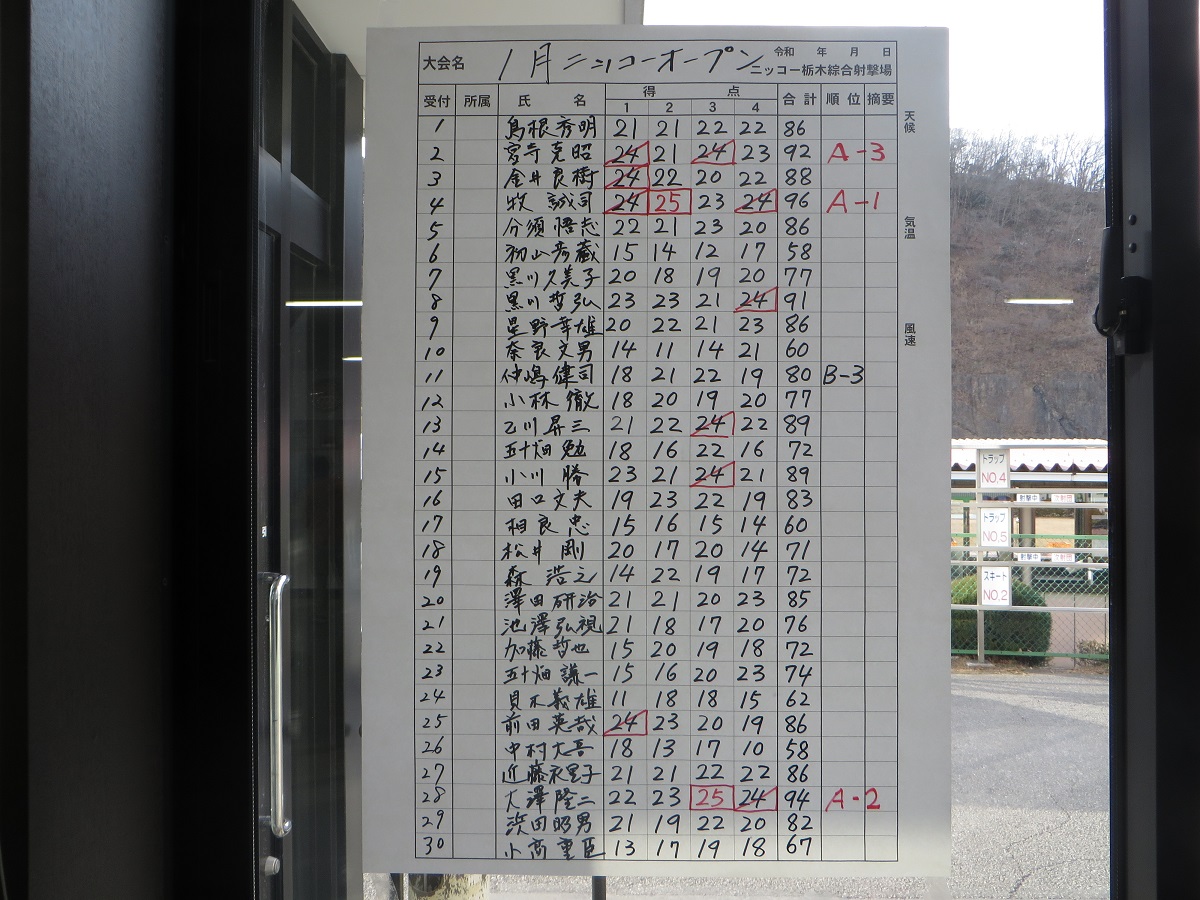 大会名 1月ニッコーオープン 令和 年 月 日
ニッコー栃木綜合射撃場
受付 所属 氏 名 得 点 合計 順位 摘要
1 2 3 4
1 鳥根秀明 21 21 22 22 86
2 宮寺克昭 24 21 24 23 92 A-3
3 金井良樹 24 22 20 22 88
4 牧 誠司 24 25 23 24 96 A-1
5 分須悟志 22 21 23 20 86
6 初山彦蔵 15 14 12 17 58
7 黒川久美子 20 18 19 20 77
8 黒川哲弘 23 23 21 24 91
9 星野幸雄 20 22 21 23 86
10 奈良文男 14 11 14 21 60
11 仲嶋健司 18 21 22 19 80 B-3
12 小林 徹 18 20 19 20 77
13 乙川昇三 21 22 24 22 89
14 五十畑 勉 18 16 22 16 72
15 小川 勝 23 21 24 21 89
16 田口文夫 19 23 22 19 83
17 相良 忠 15 16 15 14 60
18 松井 剛 20 17 20 14 71
19 森 浩之 14 22 19 17 72
20 澤田研治 21 21 20 23 85
21 池澤弘視 21 18 17 20 76
22 加藤哲也 15 20 19 18 72
23 五十畑謙一 15 16 20 23 74
24 貝木義雄 11 18 18 15 62
25 前田英哉 24 23 20 19 86
26 中村大吾 18 13 17 10 58
27 近藤衣里子 21 21 22 22 86
28 大澤隆二 22 23 25 24 94 A-2
29 浜田昭男 21 19 22 20 82
30 小高重臣 13 17 19 18 67
天候
気温
風速
トラップ
NO.4
射撃中
トラップ
NO.5
射撃中
スキート
NO.2